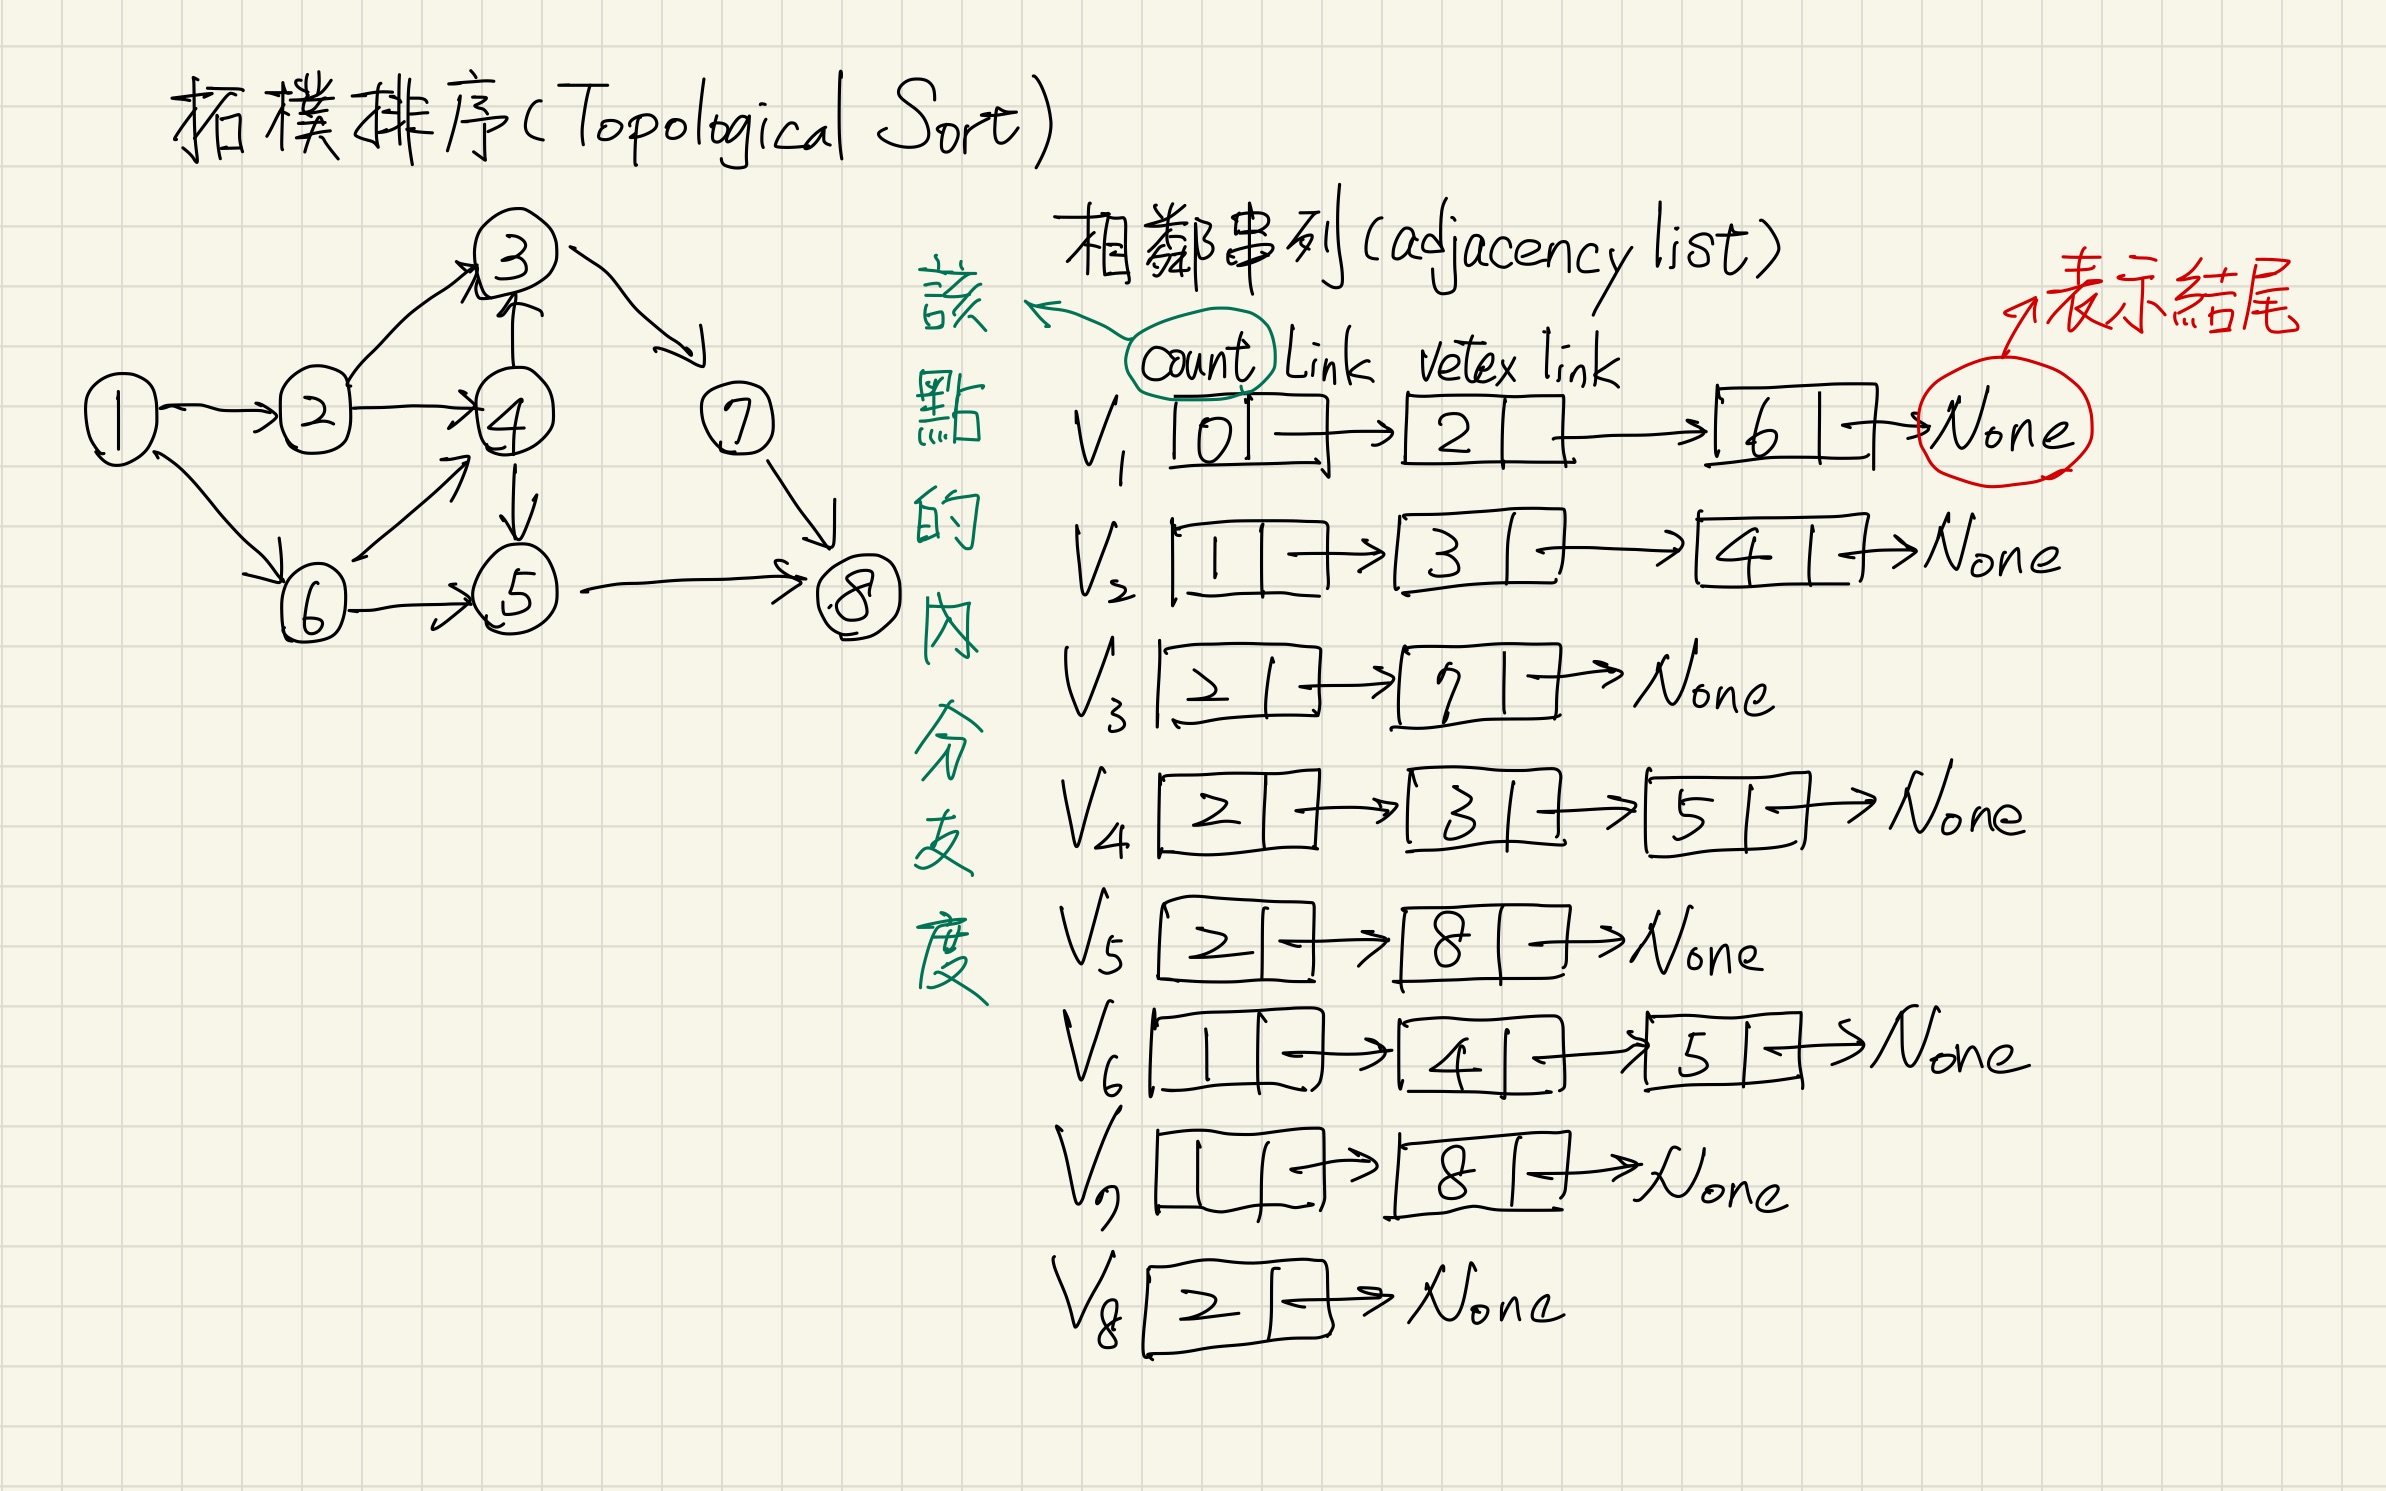 拓樸排序(Topological Sort)
1 2 3 4 5 6 7 8
相鄰串列(adjacency list)
該點的內分支度
表示結尾
count Link vetex link
V1 0 2 6 None
V2 1 3 4 None
V3 2 7 None
V4 2 3 5 None
V5 2 8 None
V6 1 4 5 None
V7 1 8 None
V8 2 None